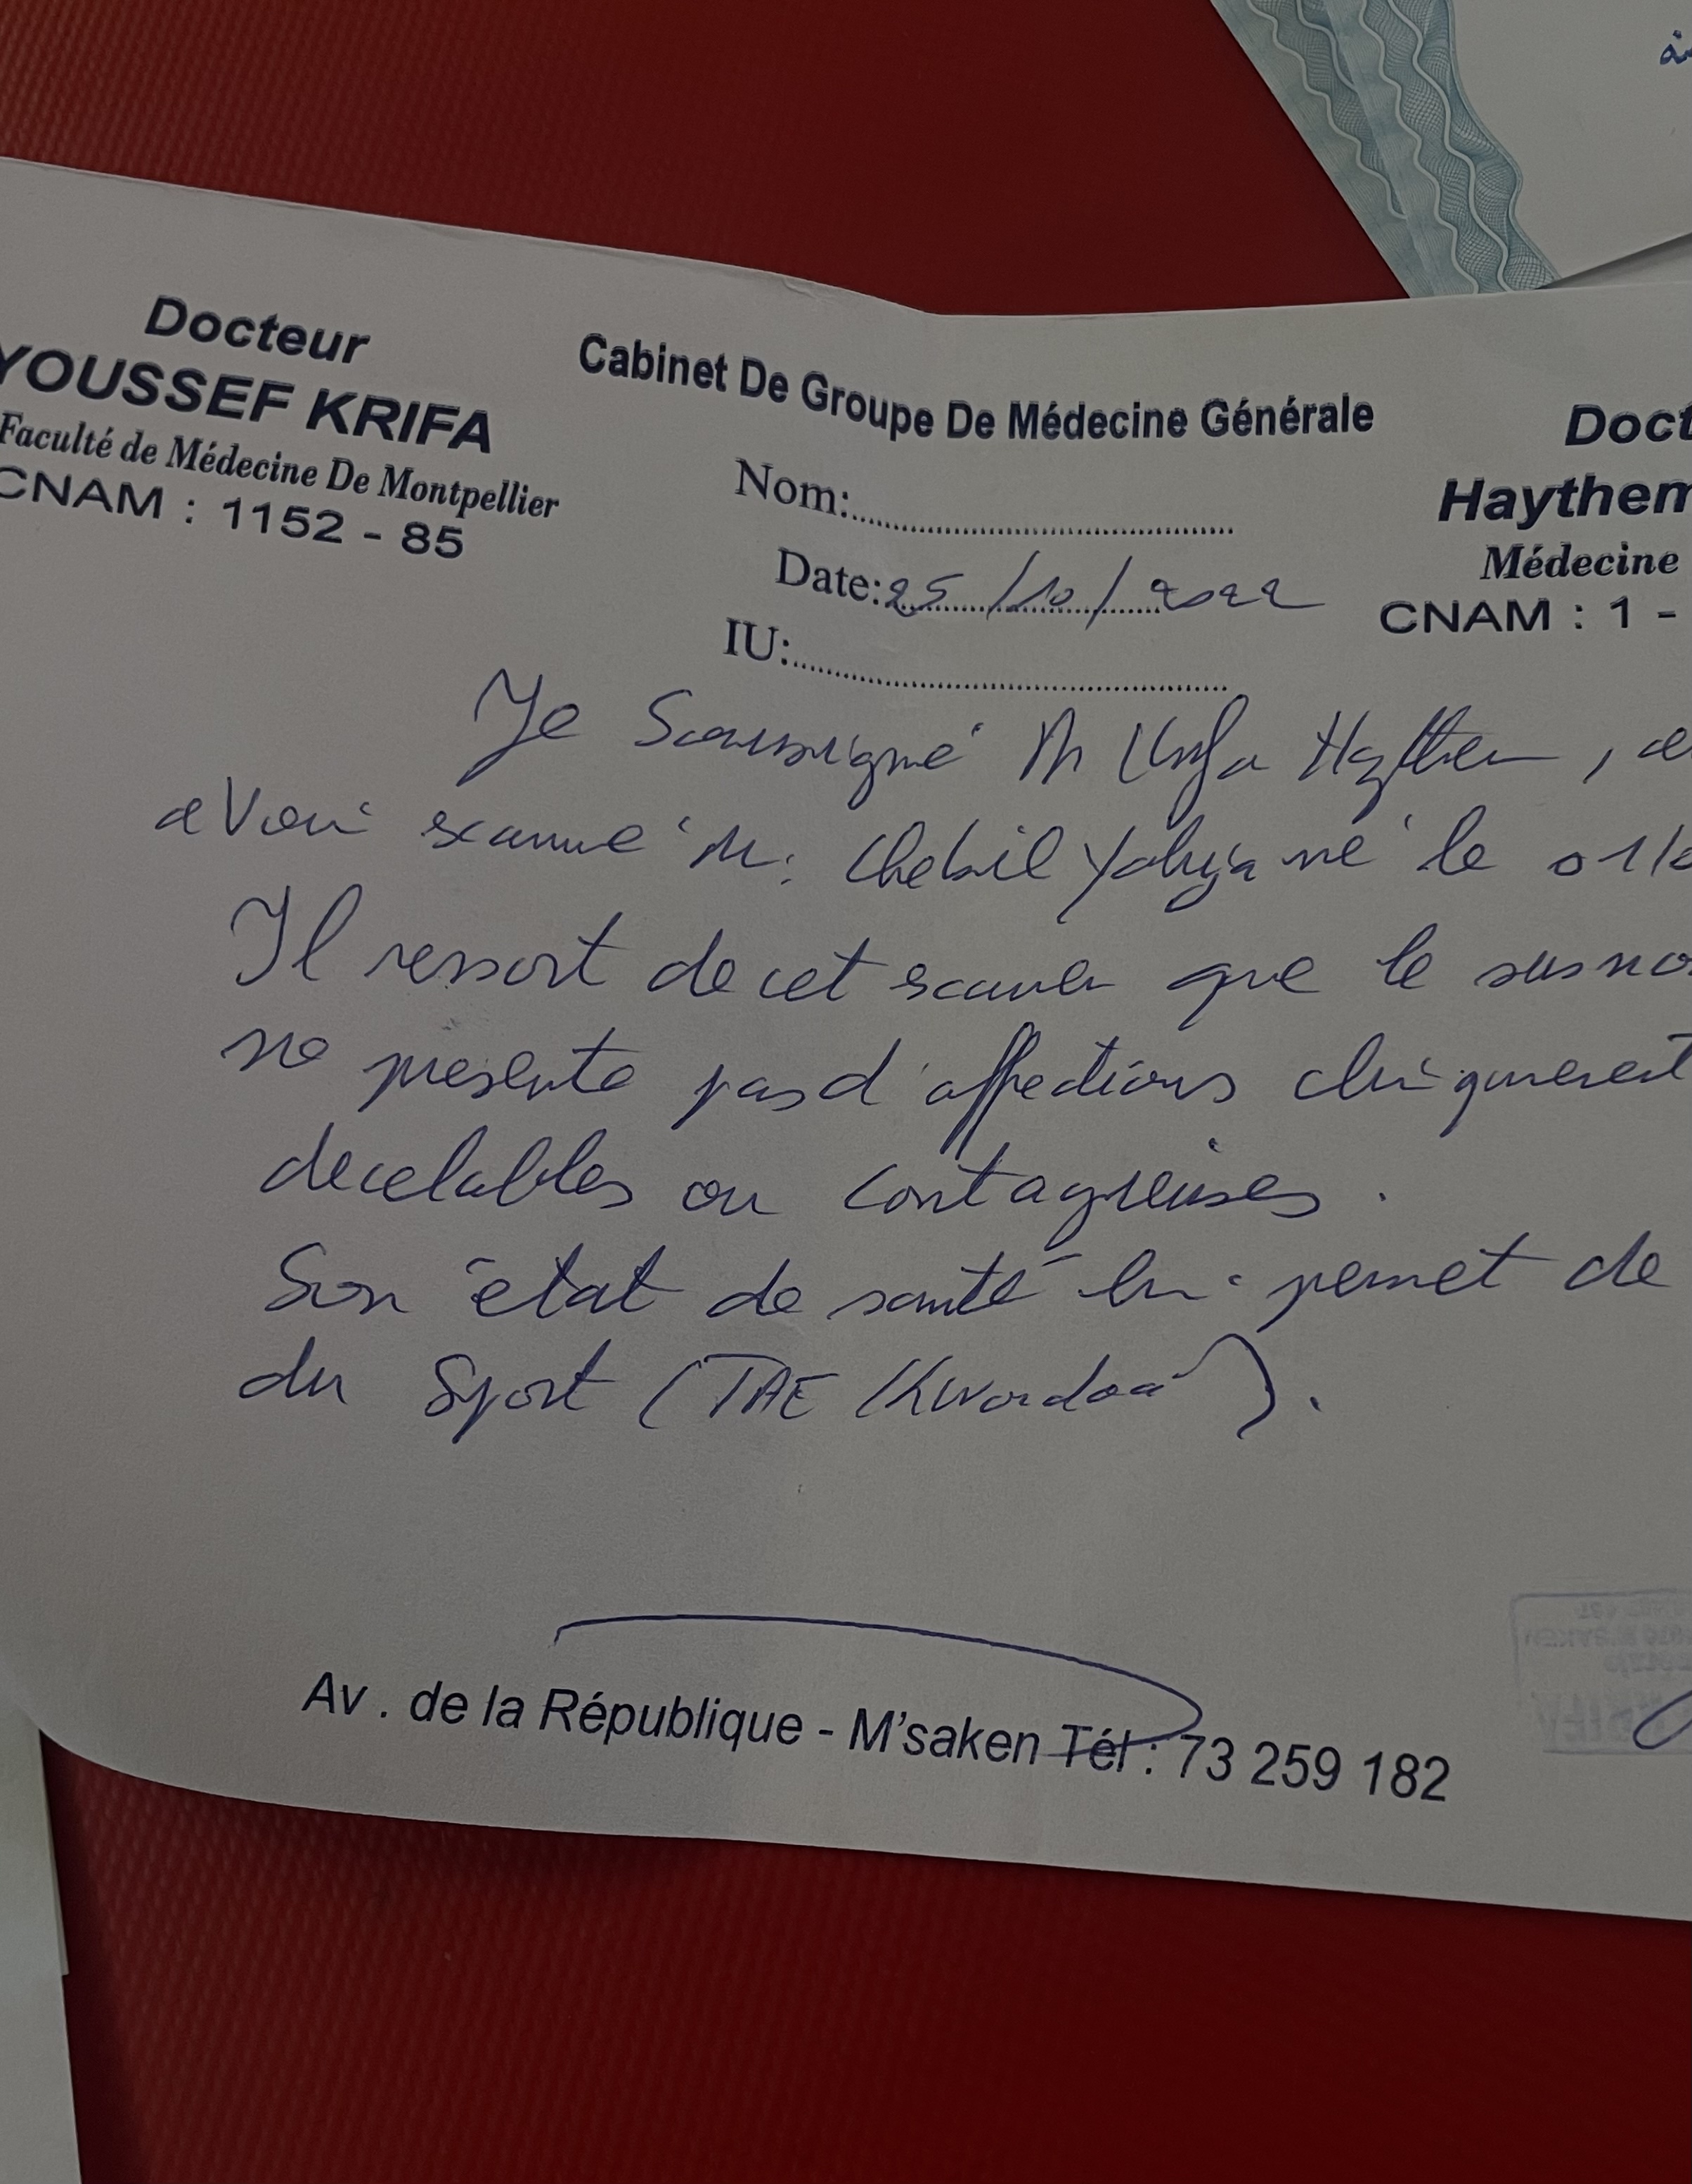 Docteur
YOUSSEF KRIFA
Faculté de Médecine De Montpellier
CNAM : 1152 - 85
Cabinet De Groupe De Médecine Générale
Nom:
Date: 25/10/2022
IU:
Doct
Haythem
Médecine
CNAM : 1 -
Je Soussigné Dr Krifa Haythem,
avoir examiné M. Chebil Yahya né le 01/
Il ressort de cet examen que le susno
ne présente pas d'affections cliniquement
decelables ou contagieuses.
Son état de santé lui permet de
du Sport (TAE Kwondoo).
Av . de la République - M'saken Tél : 73 259 182